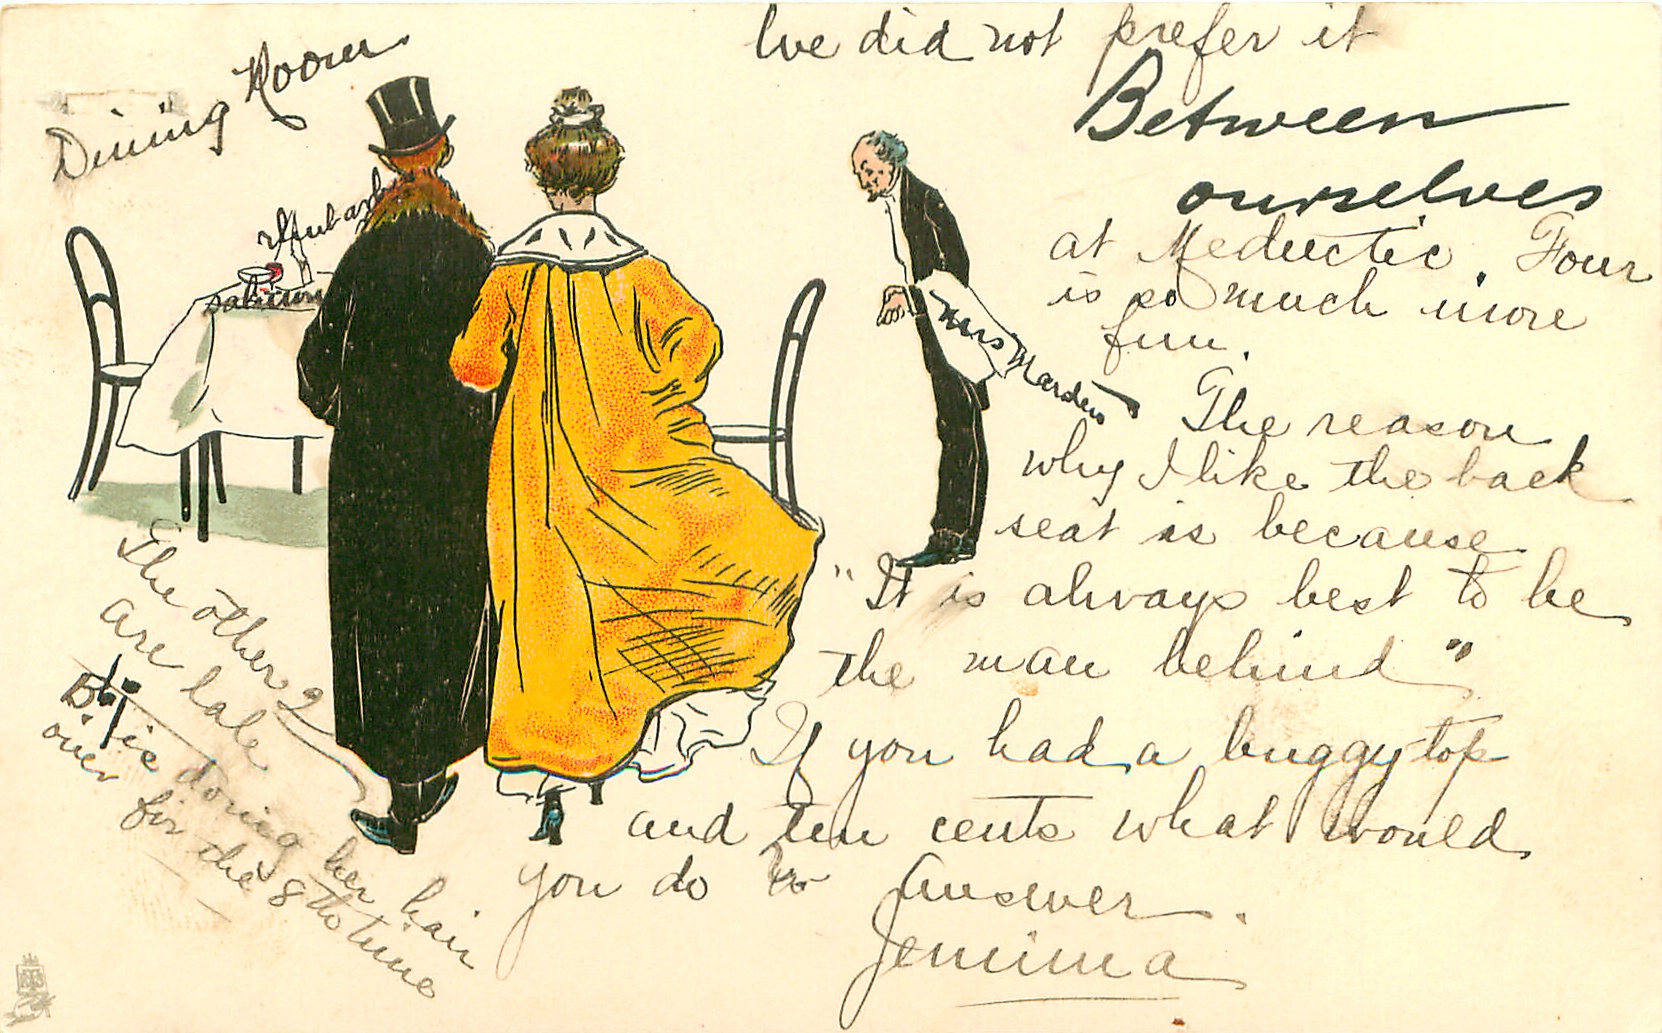 Dining Room.
rhubarb
We did not prefer it
Between
ourselves
at Meductic. Four
is so much more
fun.
Mrs Marsden
The reason
why I like the back
seat is because
"It is always best to be
the man behind"
If you had a buggy top
and ten cents what would
you do
Answer.
Jemima
The other 2
are late
is doing her hair
over for the 8th time